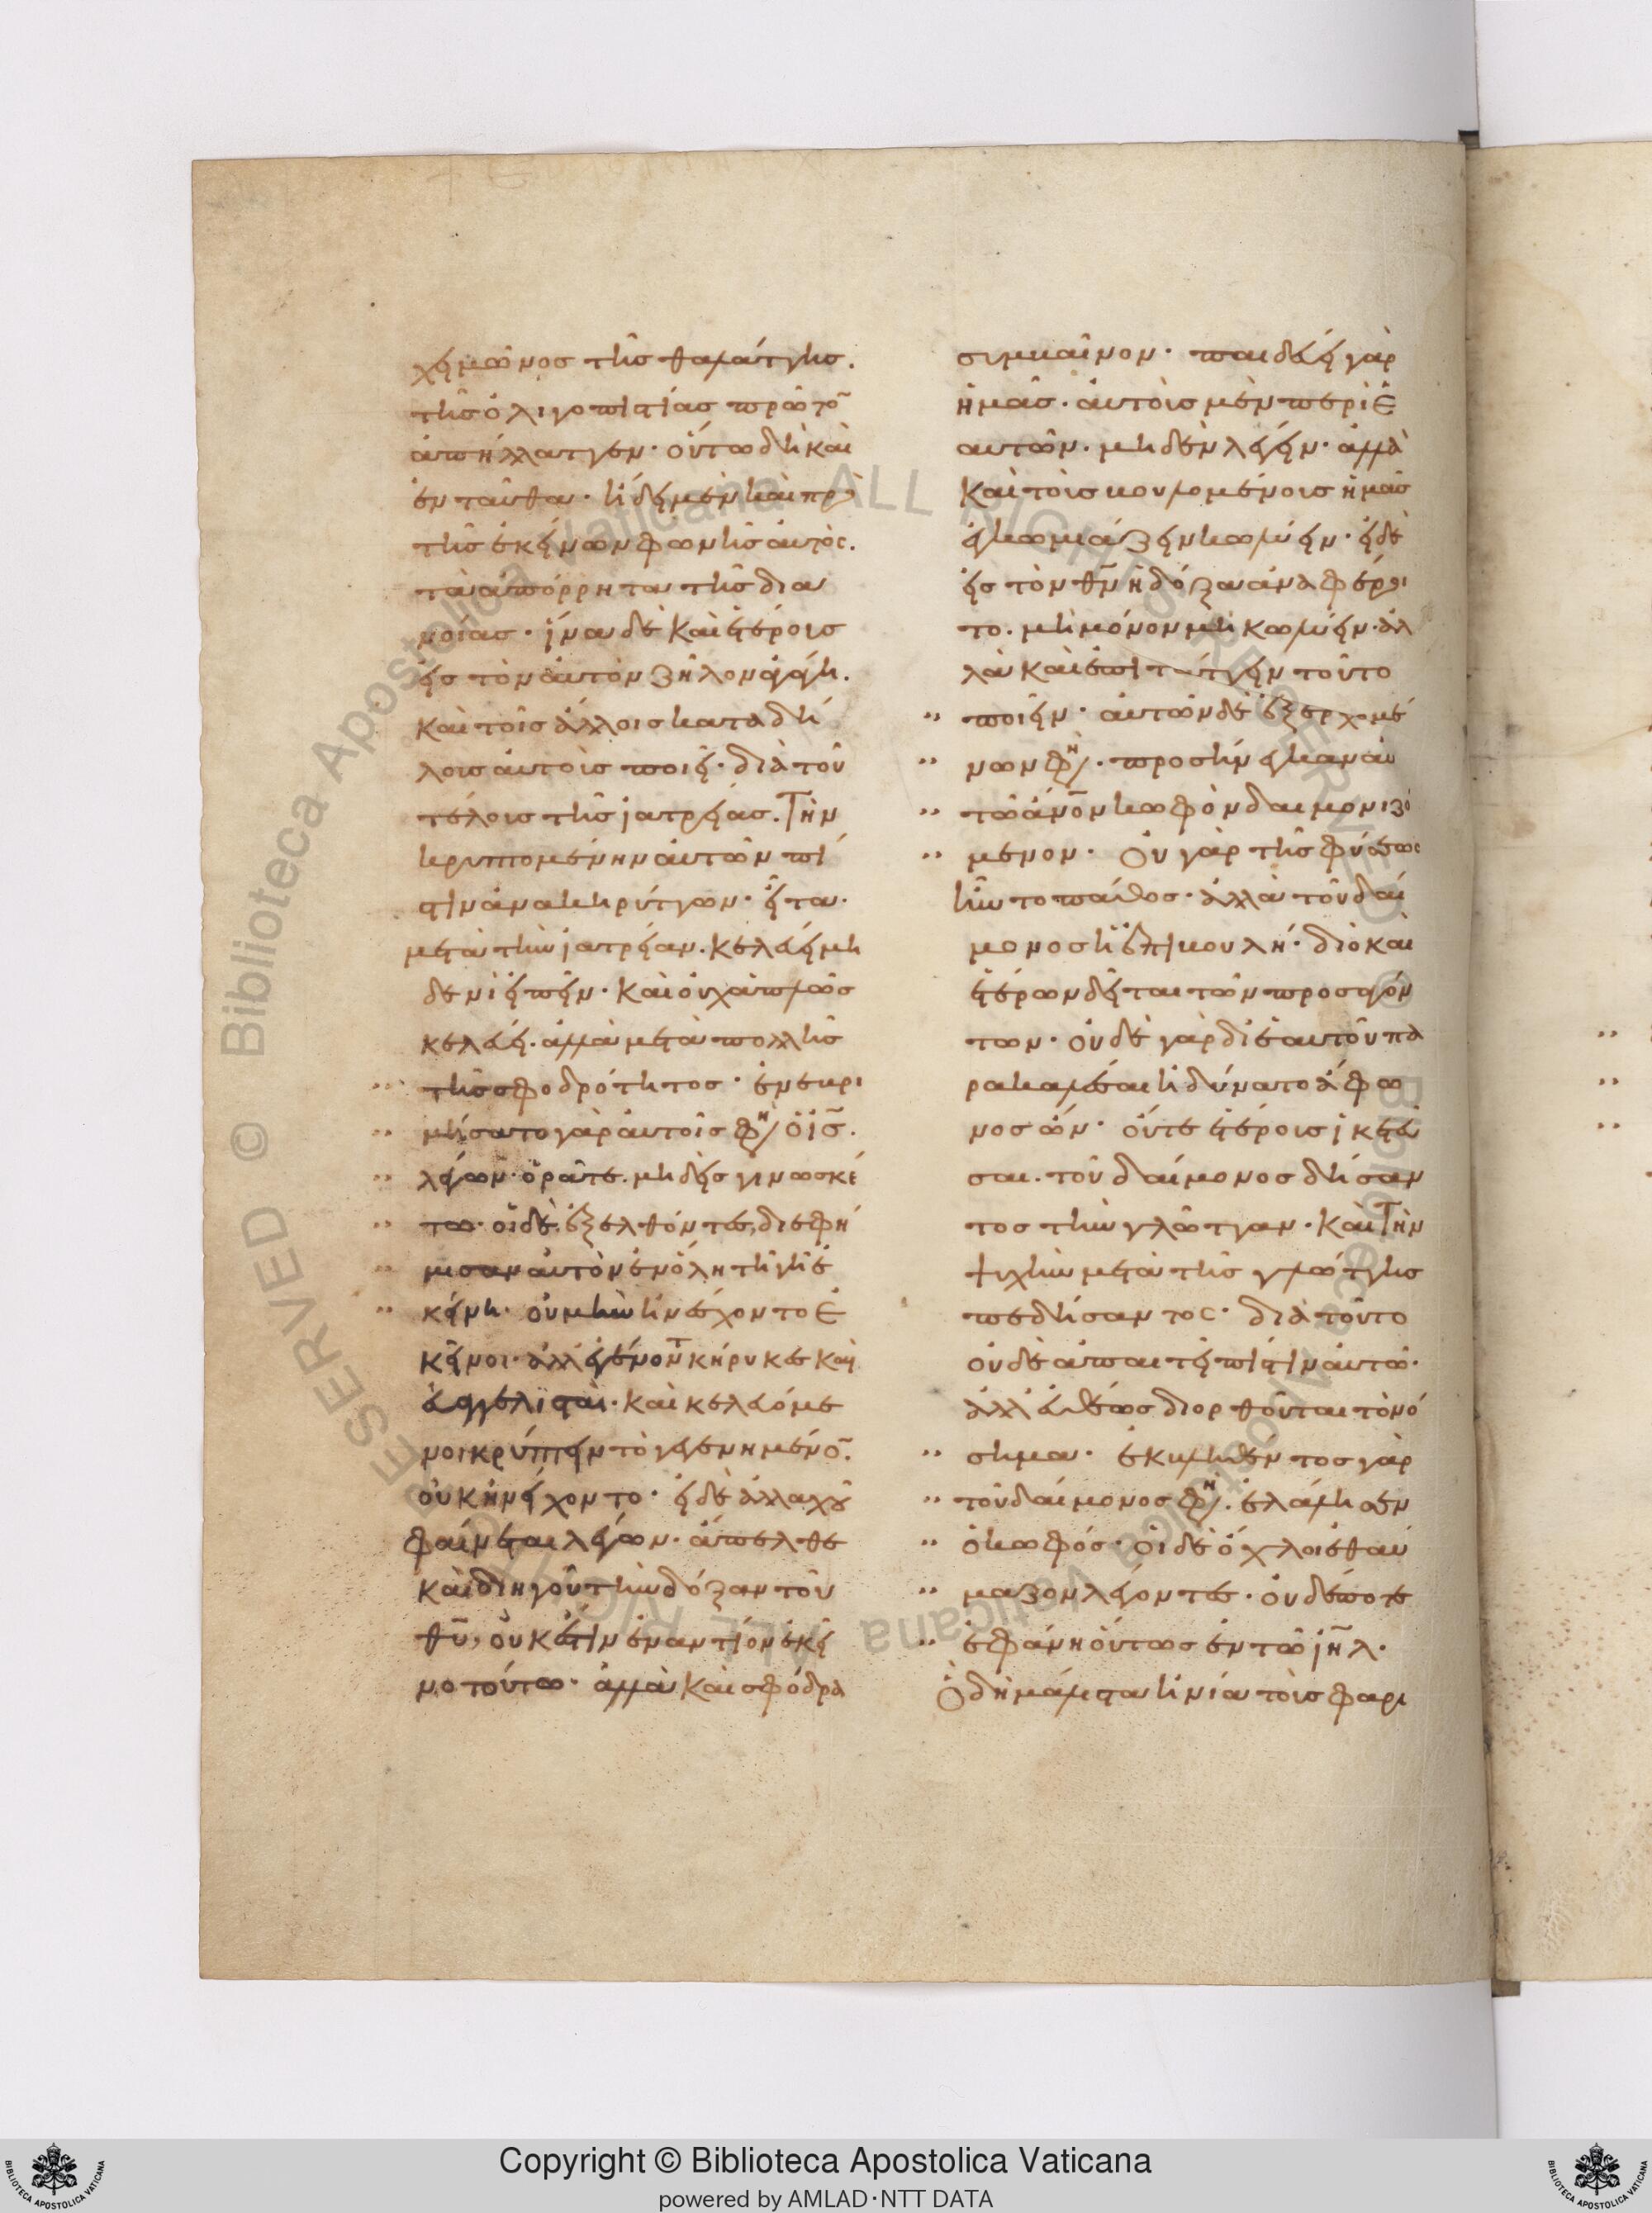 χειμῶνος τῆς θαλάττης.
τῆς ὀλιγοπιστίας πρῶτο̄
ἀπήλλαττεν· οὕτω δὴ καὶ
ἐνταῦθα· ἤδει μὲν καὶ πρὸ
τῆς ἐκείνων φωνῆς αὐτὸς.
τὰ ἀπόρρητα τῆς δια
νοίας· ἵνα δὲ καὶ ἑτέροις
εἰς τὸν αὐτὸν ζῆλον ἀγάγη.
καὶ τοῖς ἄλλοις καταδή
λους αὐτοὺς ποιεῖ· διὰ τοῦ
τέλους τῆς ἰατρείας. Τὴν
κρυπτομένην αὐτῶν πί
στιν ἀνακηρύττων· εἶτα·
μετὰ τὴν ἰατρείαν. κελεύει μη
δενὶ εἰπεῖν· καὶ οὐχ ἁπλῶς
κελεύει. ἀλλὰ μετὰ πολλῆς
τῆς σφοδρότητος· ἐνεβρι
μήσατο γὰρ αὐτοῖς φη ὁ ις̄.
λέγων· ὁρᾶτε. μηδεὶς γινωσκέ
τω· οἱ δὲ ἐξελθόντες, διεφή
μισαν αὐτὸν ἐν ὅλη τῆ γῆ ἐ
κείνη· οὐ μὴν ἠνέσχοντο ἐ
κεῖνοι· ἀλλ' ἐγένοντ κήρυκες καὶ
εὐαγγελισταὶ· καὶ κελευόμε
νοι κρύπτειν τὸ γεγενημένο̄.
οὐκ ἠνείχοντο· εἰ δὲ ἀλλαχοῦ
φαίνεται λέγων· ἄπελθε
καὶ διηγοῦ τὴν δόξαν τοῦ
θῡ, οὐκ ἔστιν ἐναντίον ἐκεῖ
νο τούτω· ἀλλὰ καὶ σφόδρα
συμβαῖνον· παιδεύει γὰρ
ἡμᾶς· αὐτοὺς μὲν περὶ ἑ
αυτῶν. μηδὲν λέγειν· ἀλλὰ
καὶ τοὺς βουλομένους ἡμᾶς
ἐγκωμιάζειν κωλύειν· εἰ δὲ
εἰς τὸν θν̄ ἡ δόξα ἀναφέροι
το. μὴ μόνον μὴ κωλύειν· ἀλ
λὰ καὶ ἐπιτάττειν τοῦτο
ποιεῖν· αὐτῶν δὲ ἐξερχομέ
νων φη. προσήνεγκαν αὐ
τῶ ἄνο̄ν κωφὸν δαιμονιζό
μενον· Οὐ γὰρ τῆς φύσεως
ἦν τὸ πάθος· ἀλλὰ τοῦ δαί
μονος ἡ ἐπιβουλή· διὸ καὶ
ἑτέρων δεῖται τῶν προσαγόν
των· οὐδὲ γὰρ δι' ἑαυτοῦ πα
ρακαλέσαι ἠδύνατο ἄφω
νος ὤν· οὔτε ἑτέρους ἱκετεῦ
σαι. τοῦ δαίμονος δήσαν
τος τὴν γλῶτταν· καὶ τὴν
ψυχὴν μετὰ τῆς γλώττης
πεδήσαντος· διὰ τοῦτο
οὐδὲ ἀπαιτεῖ πίστιν αὐτῶ·
ἀλλ' εὐθέως διορθοῦται τὸ νό
σημα· ἐκβληθέντος γὰρ
τοῦ δαίμονος φη. ἐλάλησεν
ὁ κωφός· οἱ δὲ ὄχλοι ἐθαύ
μαζον λέγοντες· οὐδέποτε
ἐφάνη οὕτως ἐν τῶ ιη̄λ.
Ὃ δὴ μάλιστα ἠνία τοὺς φαρι